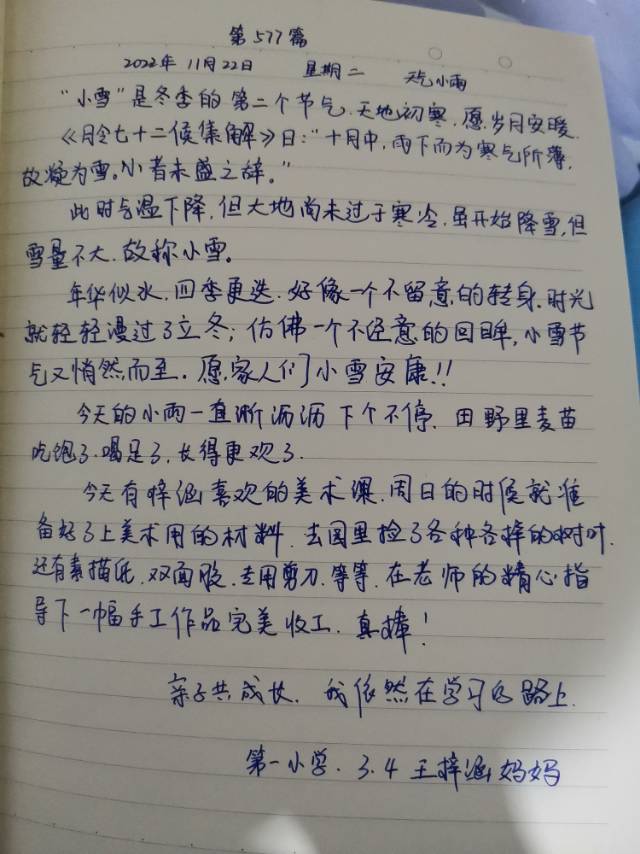 第577篇
2022年 11月22日 星期二 天气小雨
“小雪”是冬季的第二个节气.天地初寒.愿岁月安暖.
《月令七十二候集解》曰:“十月中,雨下而为寒气所薄,
故凝为雪。小者未盛之辞。”
此时气温下降,但大地尚未过于寒冷.虽开始降雪,但
雪量不大.故称小雪。
年华似水.四季更迭.好像一个不留意的转身.时光
就轻轻漫过了立冬;仿佛一个不经意的回眸,小雪节
气又悄然而至.愿家人们小雪安康!!
今天的小雨一直淅沥沥下个不停.田野里麦苗
吃饱了.喝足了,长得更欢了.
今天有梓涵喜欢的美术课.周日的时候就准
备好了上美术用的材料.去园里捡了各种各样的树叶.
还有素描纸.双面胶.专用剪刀.等等.在老师的精心指
导下一幅手工作品完美收工.真棒!
亲子共成长.我依然在学习的路上.
第一小学.3.4王梓涵妈妈